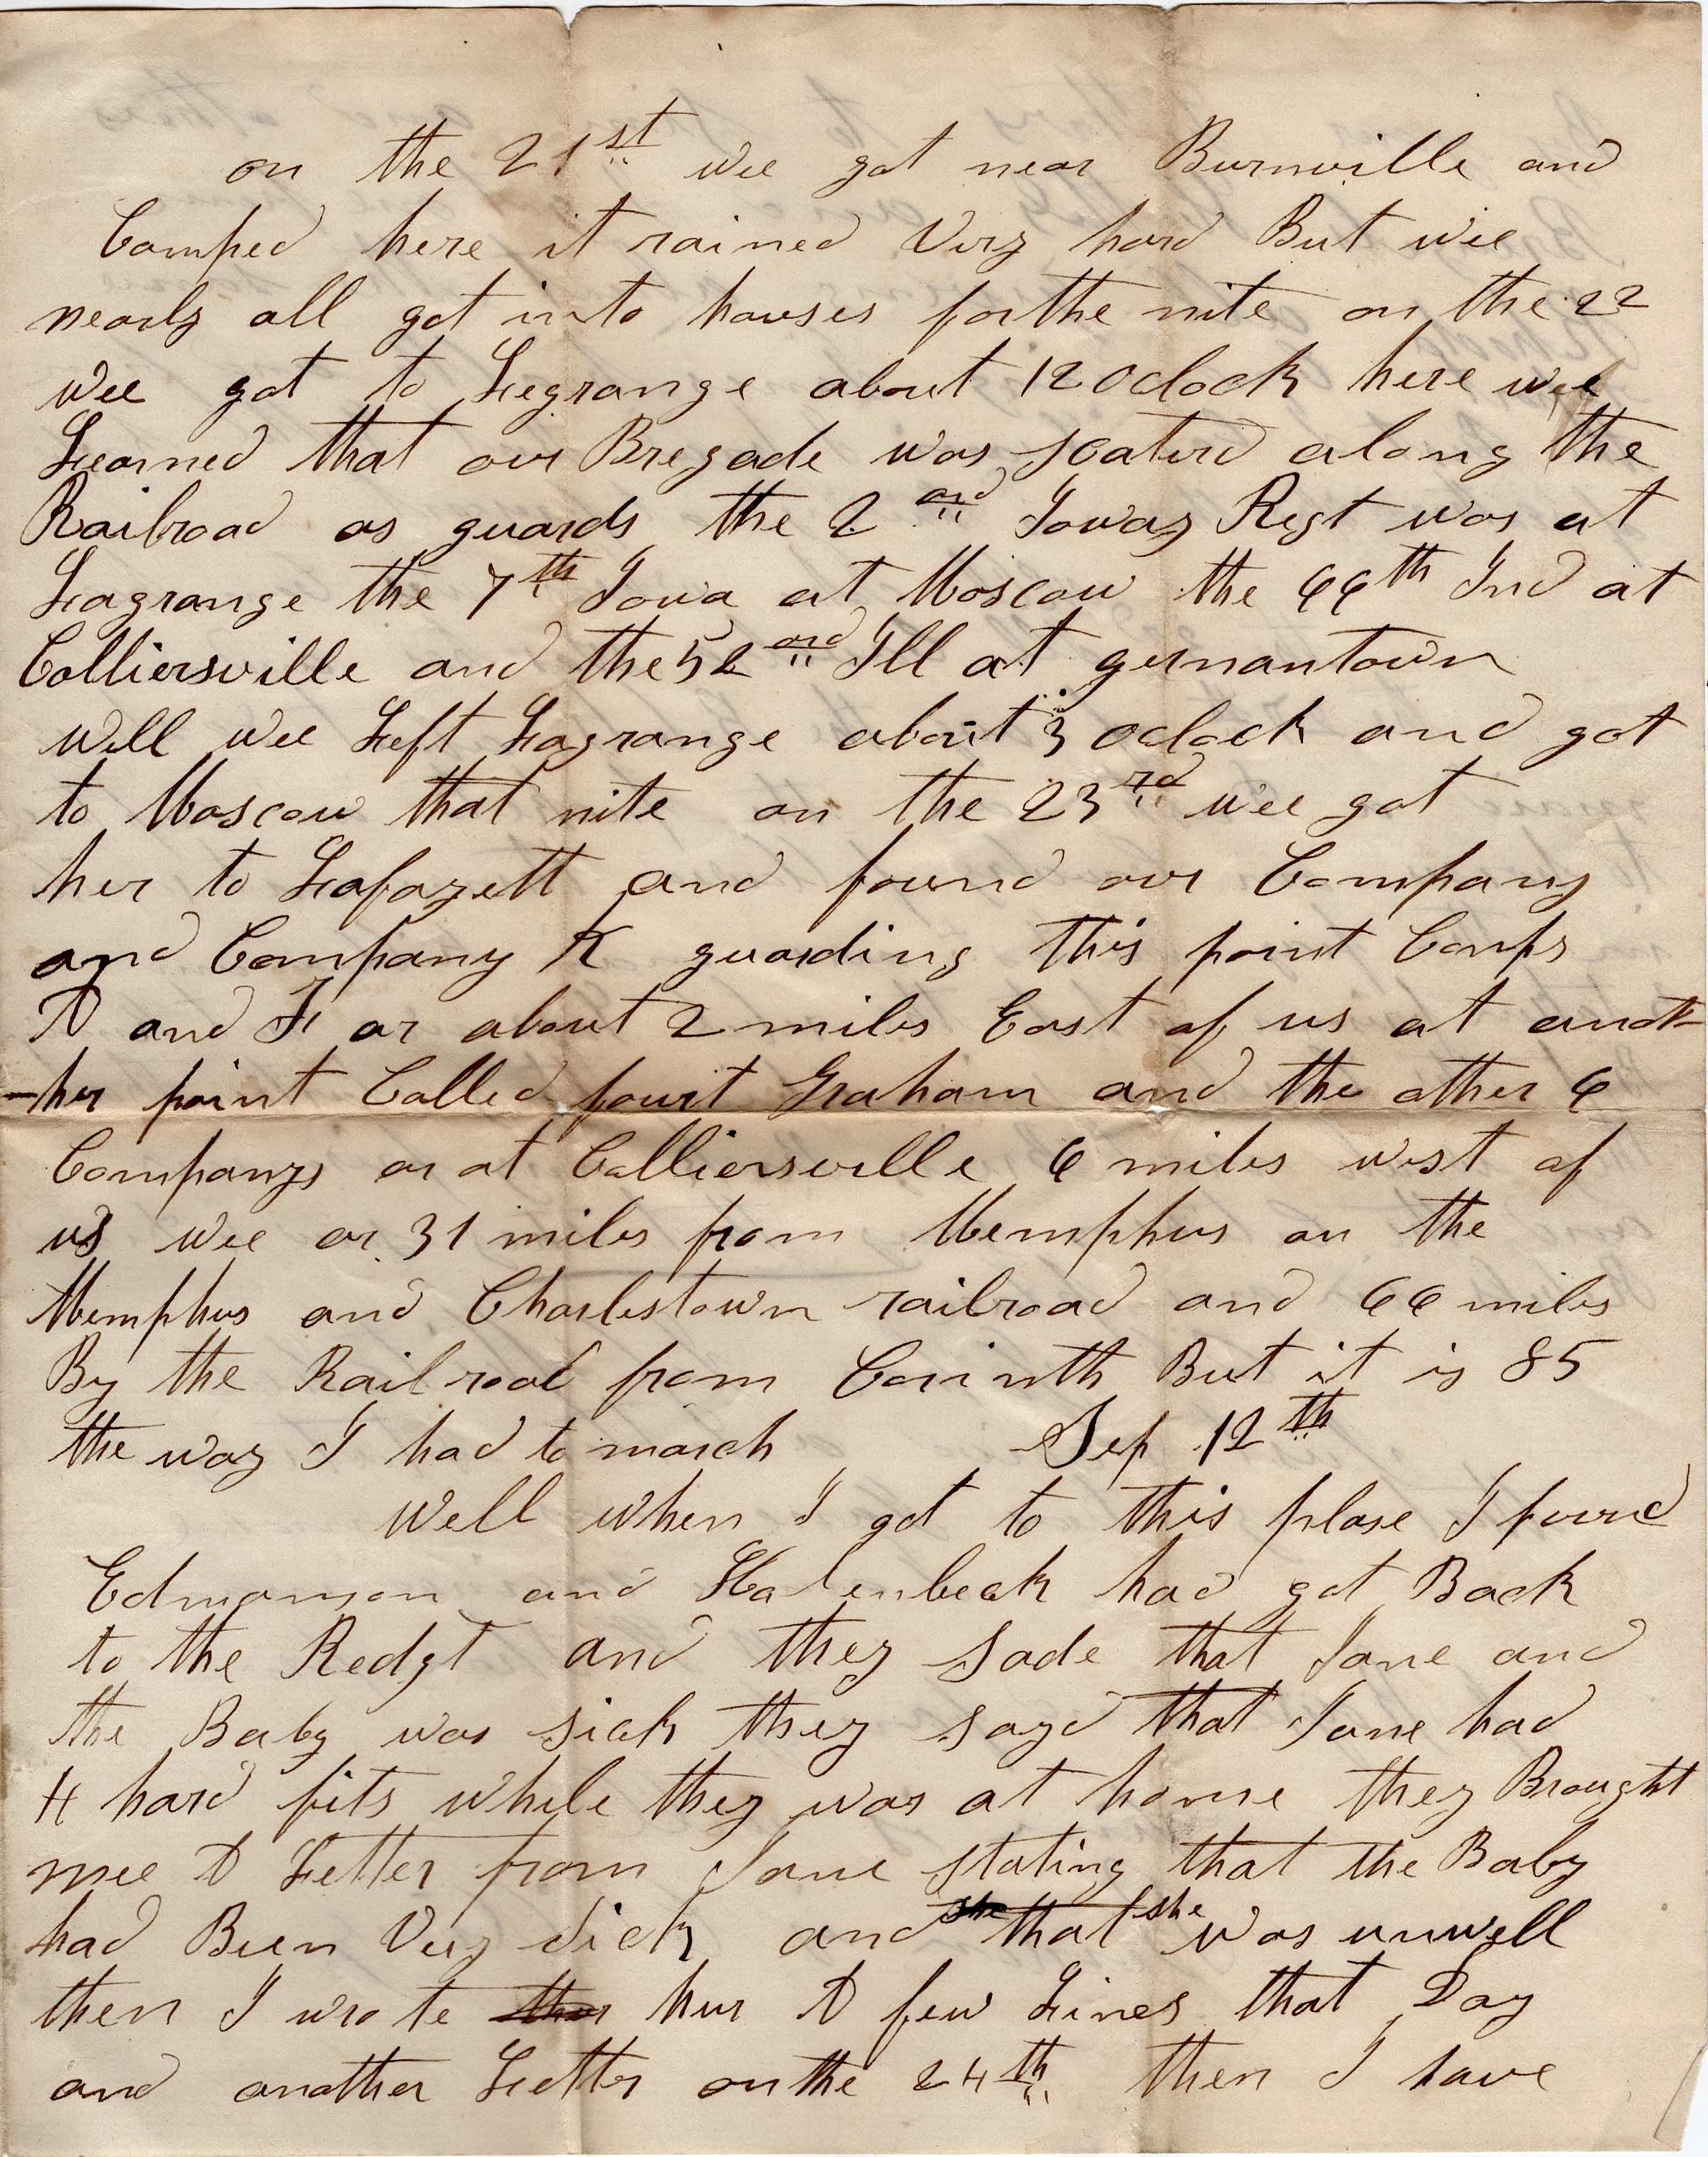 on the 21st wee got near Burnville and
Camped here it rained Very hard But wee
nearly all got into houses for the nite on the 22
wee got to Legrange about 12 Oclock here wee
Learned that our Bregade was scaterd along the
Railroad as guards the 2andIoway Regt was at
Lagrange the 7th Iowa at Moscow the 66th Ind at
Colliersville and the 52and Ill at germantown
Well wee Left Lagrange about 3 oclock and got
to Moscow that nite on the 23rd wee got
her to Lafayett and found our Company
and Company K guarding this point Comps
A and F ar about 2 miles East of us at anot-
-her point Called fourt Graham and the other 6
Companys ar at Colliersville 6 miles west of
us wee ar 31 miles from Memphus on the
Memphus and Charlestown railroad and 66 miles
By the Railroad from Corinth But it is 85
the way I had to march Sep 12th
Well when I got to this plase I found
Edmonson and Halenbeck had got Back
to the Redgt and they Sade that Jane and
the Baby was sick they sayd that Jane had
4 hard fits while they was at home they Brought
mee A Letter from Jane stating that the Baby
had Been Very Sick and she that she was unwell
then I wrote ther hur A few Lines that Day
and another Letter on the 24th then I have